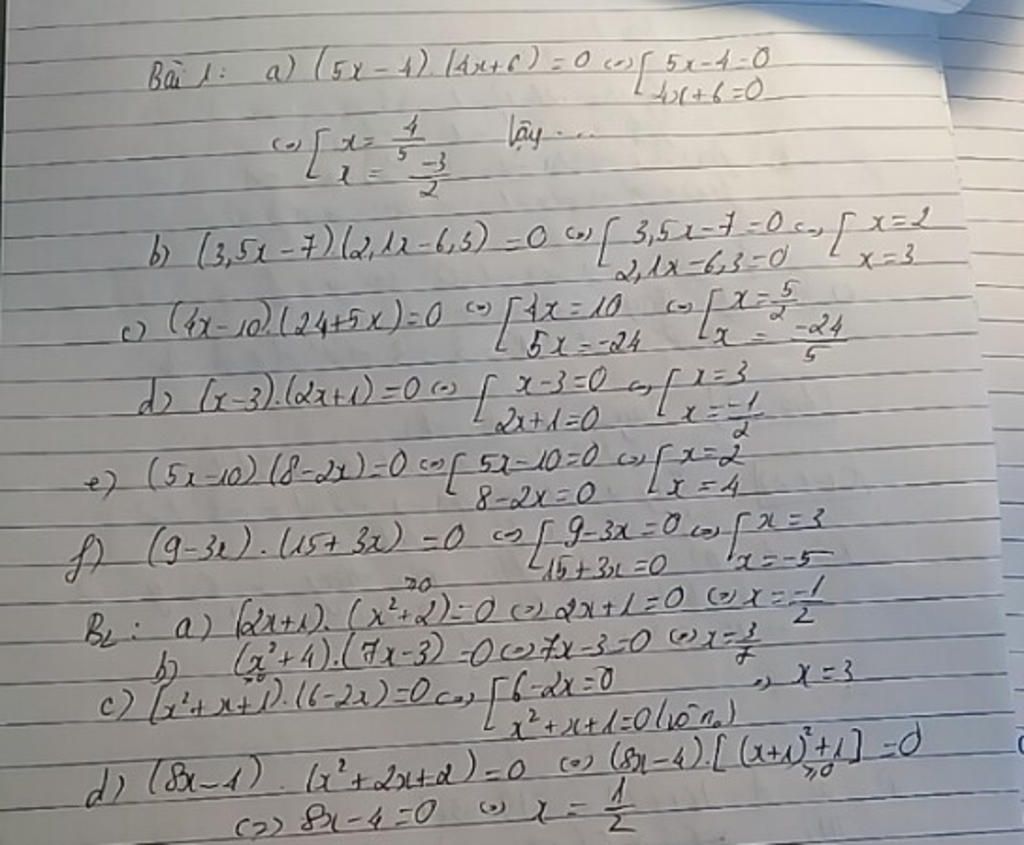 Bài 1: a) (5x-4).(4x+6)=0 <=> [ 5x-4=0
4x+6=0
<=> [ x = 4/5 Vậy ...
x = -3/2
b) (3,5x-7)(2,1x-6,3)=0 <=> [ 3,5x-7=0 <=> [ x=2
2,1x-6,3=0 x=3
c) (4x-10).(24+5x)=0 <=> [ 4x=10 <=> [ x=5/2
5x=-24 x = -24/5
d) (x-3).(2x+1)=0 <=> [ x-3=0 <=> [ x=3
2x+1=0 x=-1/2
e) (5x-10)(8-2x)=0 <=> [ 5x-10=0 <=> [ x=2
8-2x=0 x=4
f) (9-3x).(15+3x)=0 <=> [ 9-3x=0 <=> [ x=3
15+3x=0 x=-5
B2: a) (2x+1).(x²+2)=0 <=> 2x+1=0 <=> x=-1/2
b) (x²+4).(7x-3)=0 <=> 7x-3=0 <=> x=3/7
c) (x²+x+1).(6-2x)=0 <=> [ 6-2x=0 => x=3
x²+x+1=0 (vô no)
d) (8x-4).(x²+2x+2)=0 <=> (8x-4).[(x+1)²+1]=0
<=> 8x-4=0 <=> x = 1/2